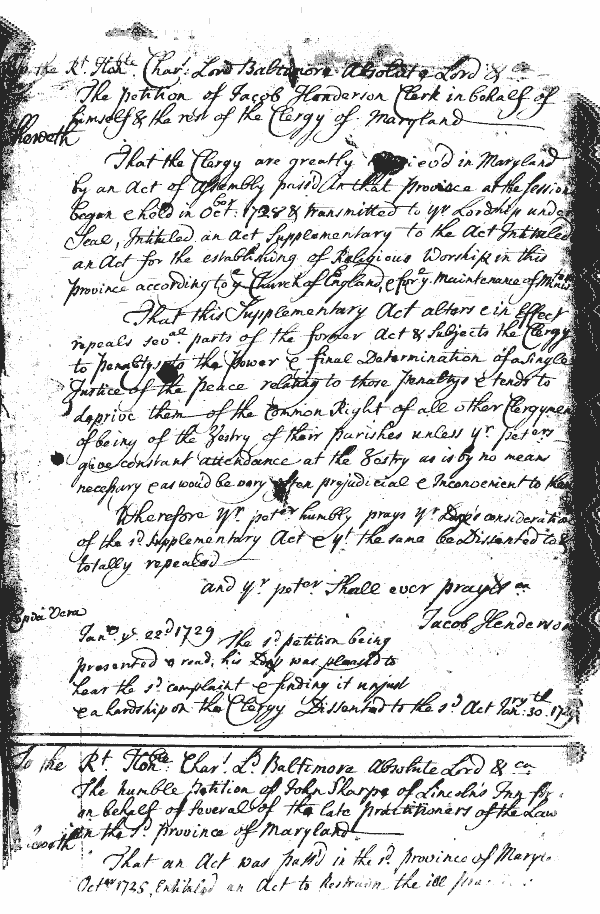 To the Rt. Honble. Charl. Lord Baltimore Absolute Lord &c
The petition of Jacob Henderson Clerk in behalf of
himself & the rest of the Clergy of Maryland
Sheweth
That the Clergy are greatly in Maryland
by an Act of Assembly pass'd in that province at the Session
began & held in Octr. 1728 & transmitted to yr Lordship under
Seal, Intituled, an Act Supplementary to the Act Intituled
an Act for the establishing of Religious Worship in this
Province according to ye Church of England, & for ye Maintenance of
That this Supplementary Act alters & in Effect
repeals sevral parts of the former Act & Subjects the Clergy
to penaltys to the power & final Determination of a Single
Justice of the peace relating to those penaltys & tends to
deprive them of the Common Right of all other Clergymen
of being of the Vestry of their parishes unless yr peters
give constant attendance at the Vestry as is by no means
necessary & as would be very often prejudicial & Inconvenient to them
Wherefore yr peter humbly prays yr Ldps consideration
of the sd Supplementary Act & yt the same be Dissented to &
totally repealed
and yr peter Shall ever pray &ca
Jacob Henderson
Copia Vera
Janry ye 22d 1729 The sd petition being
presented & read, his Ldsp was pleased to
hear the sd complaint & finding it unjust
& a hardship on the Clergy Dissented to the sd Act Janry 30th
To the Rt. Honble. Charl. Ld Baltimore Absolute Lord &ca
The humble petition of John Sharpe of Lincolns Inn
on behalf of Several of the late practitioners of the Law
in the sd province of Maryland
Sheweth
That an Act was pass'd in the sd province of
Octer 1725, Entituled an Act to Restrain the ill